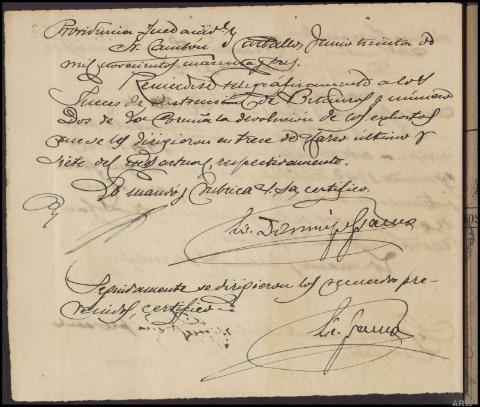 Providencia Juez accid.l
Sr. Cambón. Carballo, Junio treinta de
mil novecientos cuarenta y tres.
Recuérdese telegráficamente a los
Jueces de instrucción de Betanzos y número
dos de La Coruña la devolución de los exhortos
que se les dirigieron en trece de Marzo último y
siete del actual, respectivamente.
Lo mandó y rubrica S. Sª, certifico.
Seguidamente se dirigieron los recuerdos pre-
venidos, certifico.